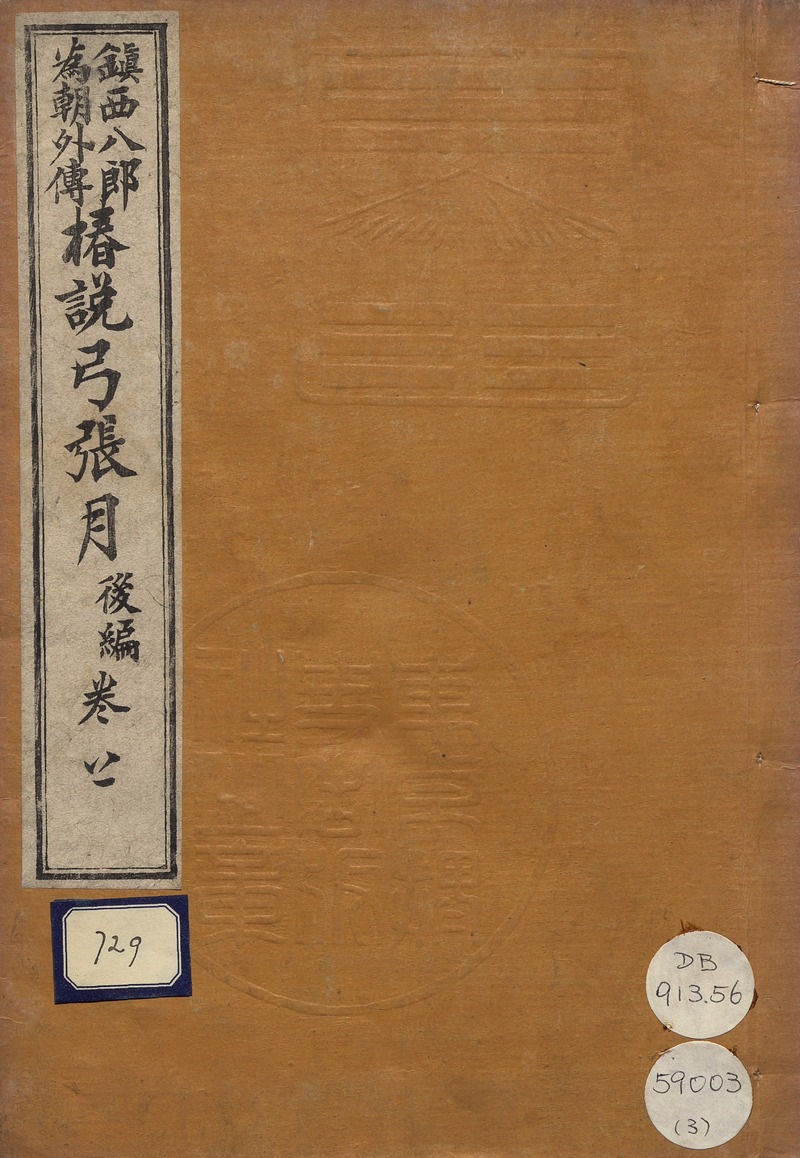 鎮西八郎
為朝外傳
椿說弓張月
後編
巻
729
DB
913.56
59003
(3)